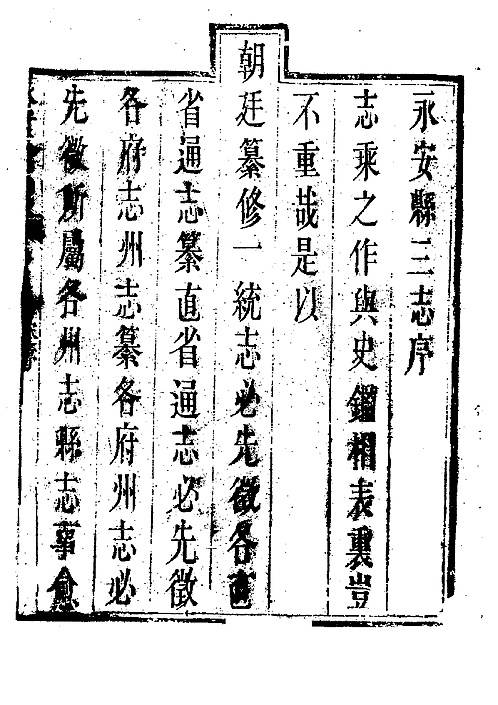 永安縣三志序
志乘之作與史鑑相表裏豈
不重哉是以
朝廷纂修一統志必先徵各直
省通志纂直省通志必先徵
各府志州志纂各府州志必
先徵所屬各州志縣志事愈